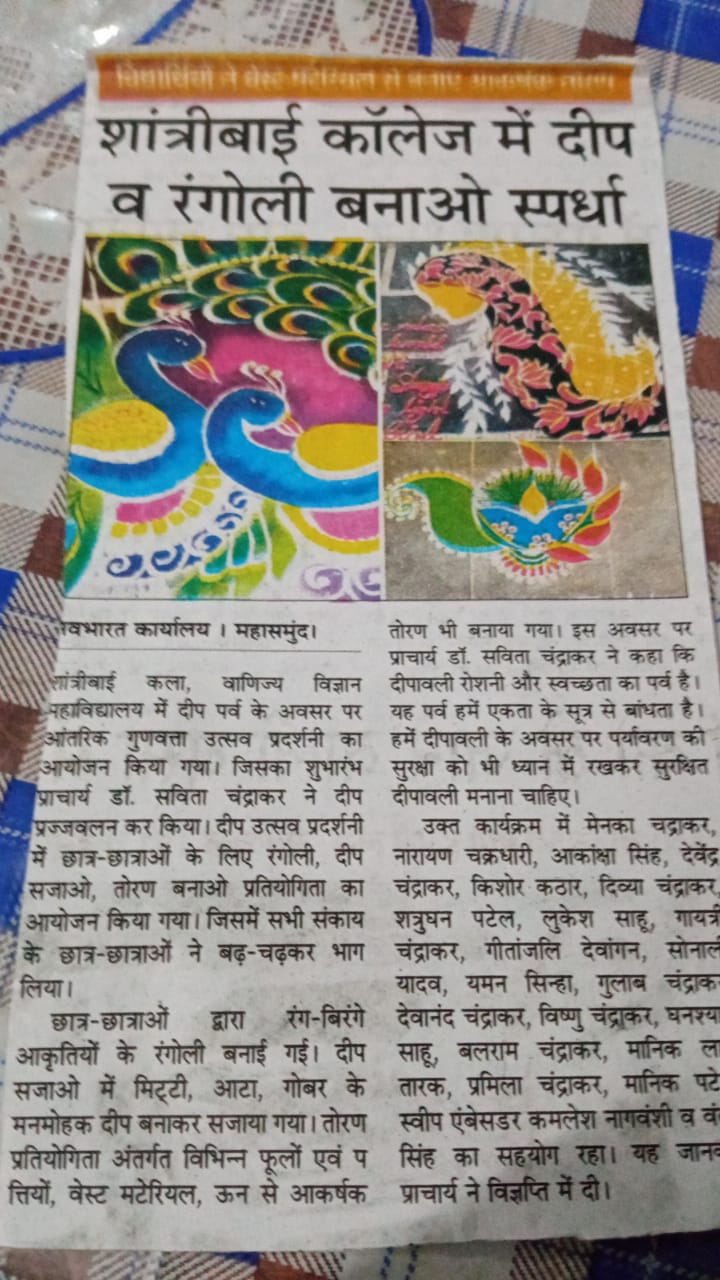 विद्यार्थियों ने वेस्ट मटेरियल से बनाए आकर्षक तोरण
शांत्रीबाई कॉलेज में दीप
व रंगोली बनाओ स्पर्धा
नवभारत कार्यालय । महासमुंद।
शांत्रीबाई कला, वाणिज्य विज्ञान
महाविद्यालय में दीप पर्व के अवसर पर
आंतरिक गुणवत्ता उत्सव प्रदर्शनी का
आयोजन किया गया। जिसका शुभारंभ
प्राचार्य डॉ. सविता चंद्राकर ने दीप
प्रज्जवलन कर किया। दीप उत्सव प्रदर्शनी
में छात्र-छात्राओं के लिए रंगोली, दीप
सजाओ, तोरण बनाओ प्रतियोगिता का
आयोजन किया गया। जिसमें सभी संकाय
के छात्र-छात्राओं ने बढ़-चढ़कर भाग
लिया।
छात्र-छात्राओं द्वारा रंग-बिरंगे
आकृतियों के रंगोली बनाई गई। दीप
सजाओ में मिट्टी, आटा, गोबर के
मनमोहक दीप बनाकर सजाया गया। तोरण
प्रतियोगिता अंतर्गत विभिन्न फूलों एवं प
त्तियों, वेस्ट मटेरियल, ऊन से आकर्षक
तोरण भी बनाया गया। इस अवसर पर
प्राचार्य डॉ. सविता चंद्राकर ने कहा कि
दीपावली रोशनी और स्वच्छता का पर्व है।
यह पर्व हमें एकता के सूत्र से बांधता है।
हमें दीपावली के अवसर पर पर्यावरण की
सुरक्षा को भी ध्यान में रखकर सुरक्षित
दीपावली मनाना चाहिए।
उक्त कार्यक्रम में मेनका चद्राकर,
नारायण चक्रधारी, आकांक्षा सिंह, देवेंद्र
चंद्राकर, किशोर कठार, दिव्या चंद्राकर,
शत्रुघन पटेल, लुकेश साहू, गायत्री
चंद्राकर, गीतांजलि देवांगन, सोनाल
यादव, यमन सिन्हा, गुलाब चंद्राक
देवानंद चंद्राकर, विष्णु चंद्राकर, घनश्या
साहू, बलराम चंद्राकर, मानिक ला
तारक, प्रमिला चंद्राकर, मानिक पटे
स्वीप एंबेसडर कमलेश नागवंशी व
सिंह का सहयोग रहा। यह जानक
प्राचार्य ने विज्ञप्ति में दी।